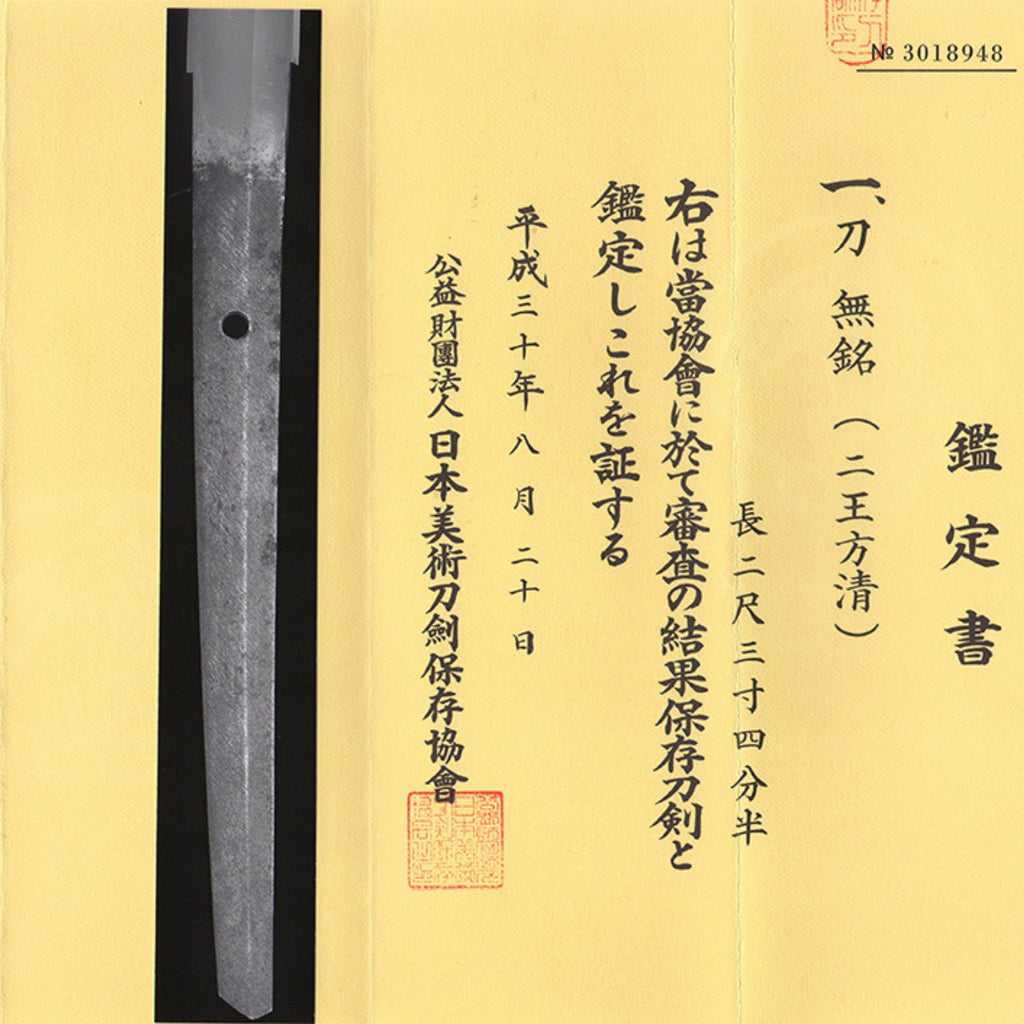 № 3018948
鑑定書
一、刀 無銘（二王方清）
長二尺三寸四分半
右は當協會に於て審査の結果保存刀剣と
鑑定しこれを証する
平成三十年八月二十日
公益財團法人日本美術刀劍保存協會